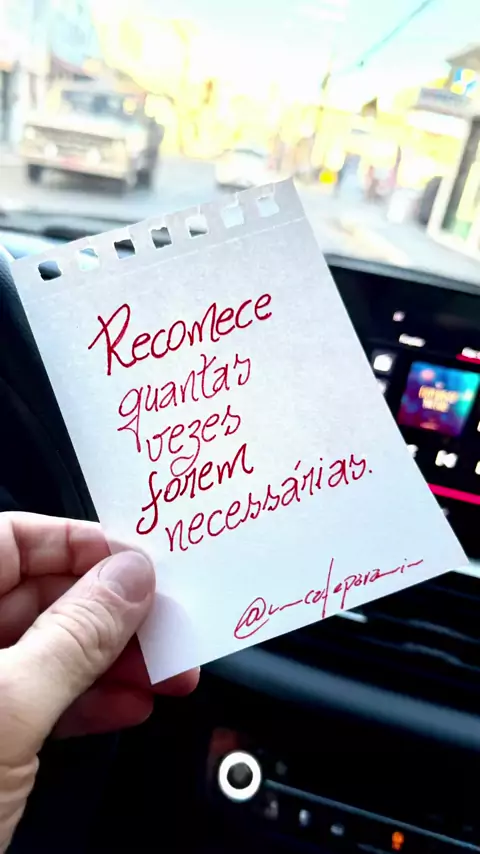 Recomece
quantas
vezes
forem
necessárias.